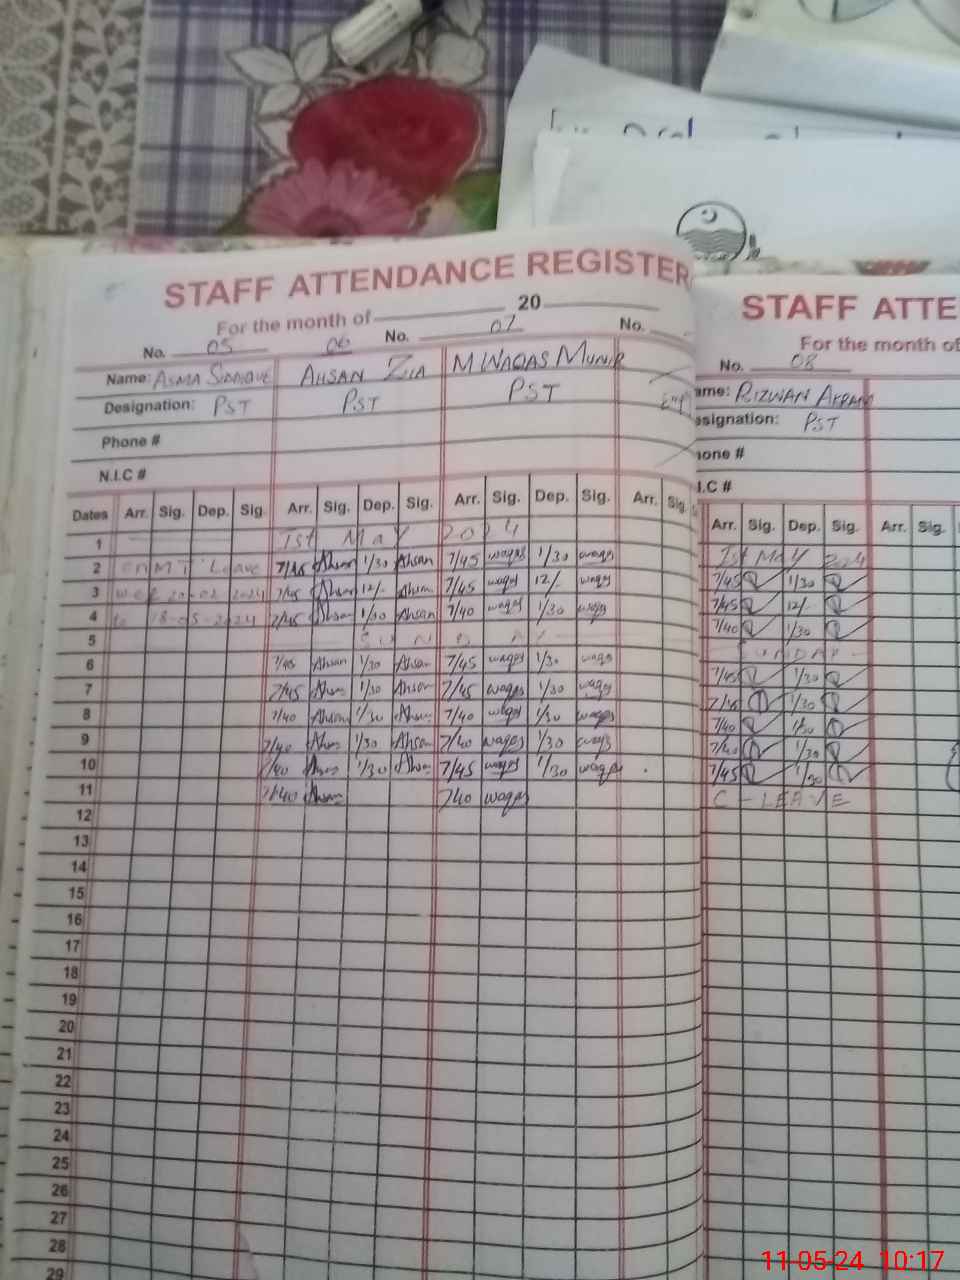 STAFF ATTENDANCE REGISTER
For the month of 20
No. 05 06 No. 07 No.
Name: ASMA SIDDIQUE AHSAN ZIA M WAQAS MUNIR
Designation: PST PST PST
Phone #
N.I.C #
Dates Arr. Sig. Dep. Sig. Arr. Sig. Dep. Sig. Arr. Sig. Dep. Sig. Arr. Sig.
1 Ist May 2024
2 on M T Leave 7/45 Ahsan 1/30 Ahsan 7/45 waqas 1/30 waqas
3 w.e.f 20-02-2024 7/45 Ahsan 12/- Ahsan 7/45 waqas 12/- waqas
4 to 18-05-2024 7/45 Ahsan 1/30 Ahsan 7/40 waqas 1/30 waqas
5 SUNDAY
6 7/45 Ahsan 1/30 Ahsan 7/45 waqas 1/30 waqas
7 7/45 Ahsan 1/30 Ahsan 7/45 waqas 1/30 waqas
8 7/40 Ahsan 1/30 Ahsan 7/40 waqas 1/30 waqas
9 7/40 Ahsan 1/30 Ahsan 7/40 waqas 1/30 waqas
10 7/40 Ahsan 1/30 Ahsan 7/45 waqas 1/30 waqas
11 7/40 Ahsan 7/40 waqas
12
13
14
15
16
17
18
19
20
21
22
23
24
25
26
27
28
29
STAFF ATTE
For the month of
No. 08
ame: RIZWAN AKRAM
esignation: PST
hone #
I.C #
Arr. Sig. Dep. Sig. Arr. Sig.
Ist May 2024
7/45 1/30
7/45 12/-
7/40 1/30
SUNDAY
7/45 1/30
7/45 1/30
7/40 1/30
7/40 1/30
7/45 1/30
C - LEAVE
11-05-24 10:17